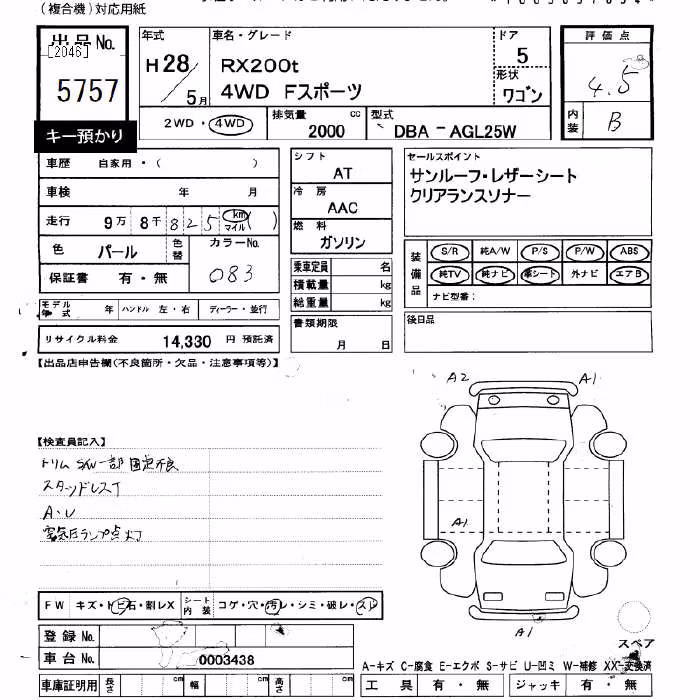 (複合機)対応用紙
出品No.
[2046]
5757
キー預かり
年式
H28/5月
車名・グレード
RX200t
4WD Fスポーツ
ドア
5
形状
ワゴン
評価点
4.5
内装
B
2WD・4WD
排気量
2000 cc
型式
DBA-AGL25W
車歴 自家用・( )
車検 年 月
走行 9万8千825 km マイル ( )
色 パール
色替
カラーNo.
083
保証書 有・無
シフト
AT
冷房
AAC
燃料
ガソリン
乗車定員 名
積載量 kg
総重量 kg
セールスポイント
サンルーフ・レザーシート
クリアランスソナー
装備品
S/R 純A/W P/S P/W ABS
純TV 純ナビ 革シート 外ナビ エアB
ナビ型番:
モデル年式 年 ハンドル 左・右 ディーラー・並行
リサイクル料金 14,330 円 預託済
書類期限
月 日
後日品
【出品店申告欄(不良箇所・欠品・注意事項等)】
【検査員記入】
トリムSW一部固定不良
スタッドレスT
A・U
空気圧ランプ点灯
A2 A1
A1
A1
FW キズ・トビ石・割レX
シート内装 コゲ・穴・汚レ・シミ・破レ・スレ
登録No.
車台No. 0003438
車庫証明用 長さ cm 幅 cm 高さ cm
スペア
A-キズ C-腐食 E-エクボ S-サビ U-凹ミ W-補修 XX-交換済
工具 有・無 ジャッキ 有・無